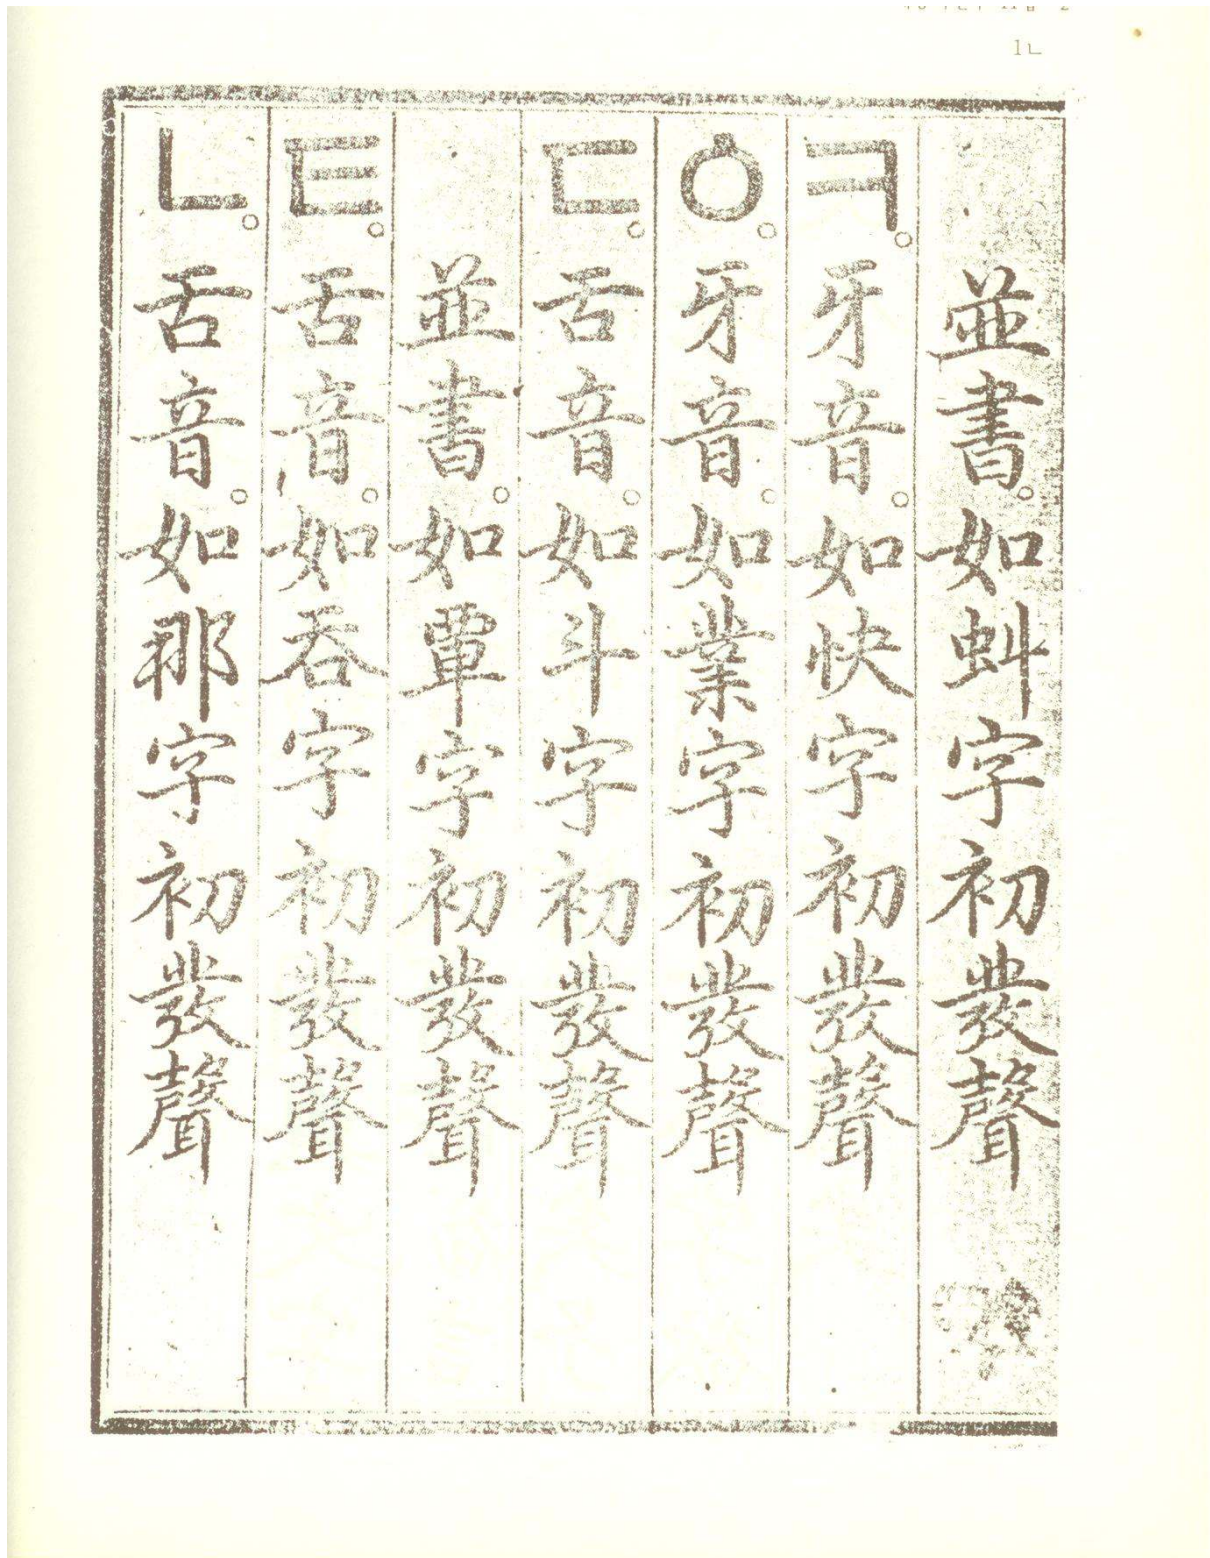 1ㄴ
並書。如虯字初發聲
ㅋ。牙音。如快字初發聲
ㆁ。牙音。如業字初發聲
ㄷ。舌音。如斗字初發聲
並書。如覃字初發聲
ㅌ。舌音。如呑字初發聲
ㄴ。舌音。如那字初發聲